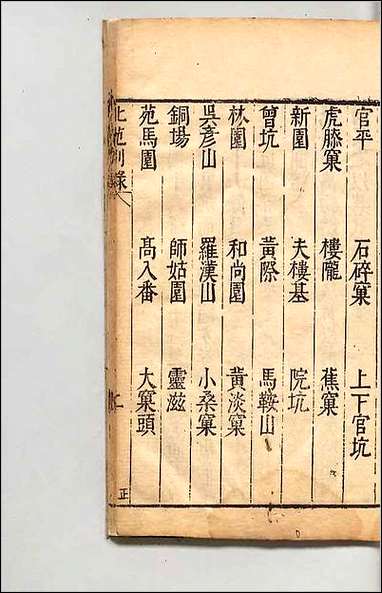 官平 石碎窠 上下官坑
虎膝窠 樓隴 蕉窠
新園 夫樓基 院坑
曾坑 黃際 馬鞍山
林園 和尚園 黃淡窠
吳彥山 羅漢山 小桑窠
銅場 師姑園 靈滋
苑馬園 高入番 大窠頭
北苑別錄 二
正